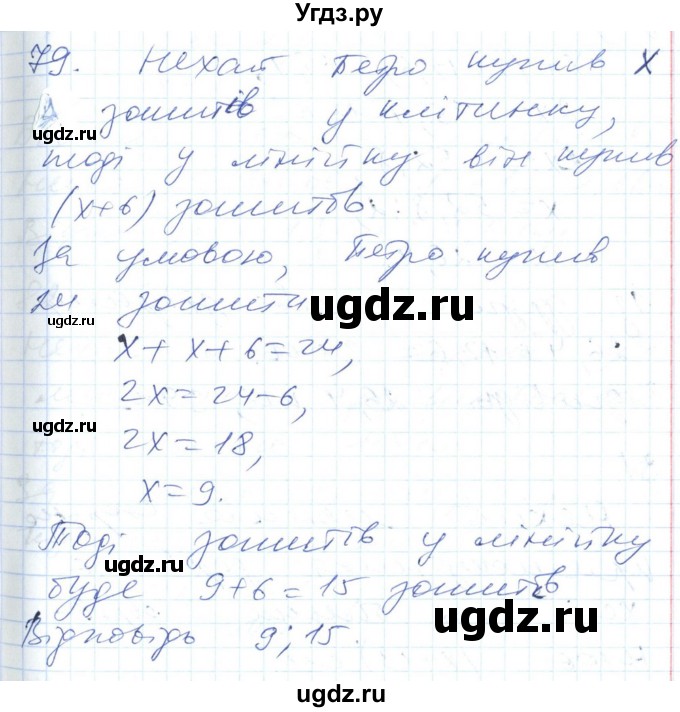 Угдз.ру
79. Нехай Петро купив х
зошитів у клітинку,
тоді у лінійку він купив
(х+6) зошитів.
За умовою, Петро купив
24 зошити
х + х + 6 = 24,
2х = 24-6,
2х = 18,
х = 9.
Тоді зошитів у лінійку
буде 9+6 = 15 зошитів
Відповідь 9; 15.
ugdz.ru
ugdz.ru
ugdz.ru
ugdz.ru
ugdz.ru
ugdz.ru
ugdz.ru
ugdz.ru
ugdz.ru
ugdz.ru
ugdz.ru